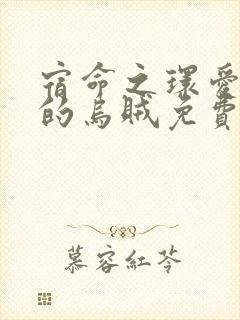 宿命之環愛
的烏賊免費
慕容紅苓